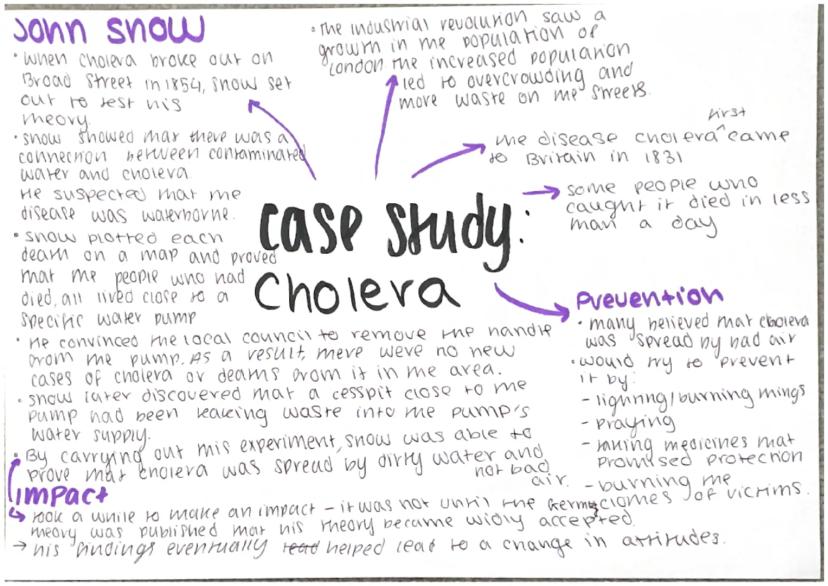 John Snow
• When cholera broke out on
Broad Street in 1854, Snow set
out to test his
theory.
• Snow showed that there was a
connection between contaminated
water and cholera
He suspected that the
disease was waterborne.
• Snow plotted each
death on a map and proved
that the people who had
died, all lived close to a
specific water pump
• He convinced the local council to remove the handle
from the pump. As a result, there were no new
cases of cholera or deaths from it in the area.
• Snow later discovered that a cesspit close to the
pump had been leaking waste into the pump's
water supply.
• By carrying out this experiment, Snow was able to
prove that cholera was spread by dirty water and
not bad
air.
Impact
→ took a while to make an impact - it was not until the germ
theory was published that his theory became widly accepted.
→ his findings eventually lead helped lead to a change in attitudes.
• The industrial revolution saw a
growth in the population of
London the increased population
led to overcrowding and
more waste on the streets.
the disease cholera ^first came
to Britain in 1831
some people who
caught it died in less
than a day
Case Study:
Cholera
Prevention
• many believed that cholera
was spread by bad air
• would try to prevent
it by:
- lighting/burning things
- praying
- taking medicines that
promised protection
- burning the
clothes of victims.